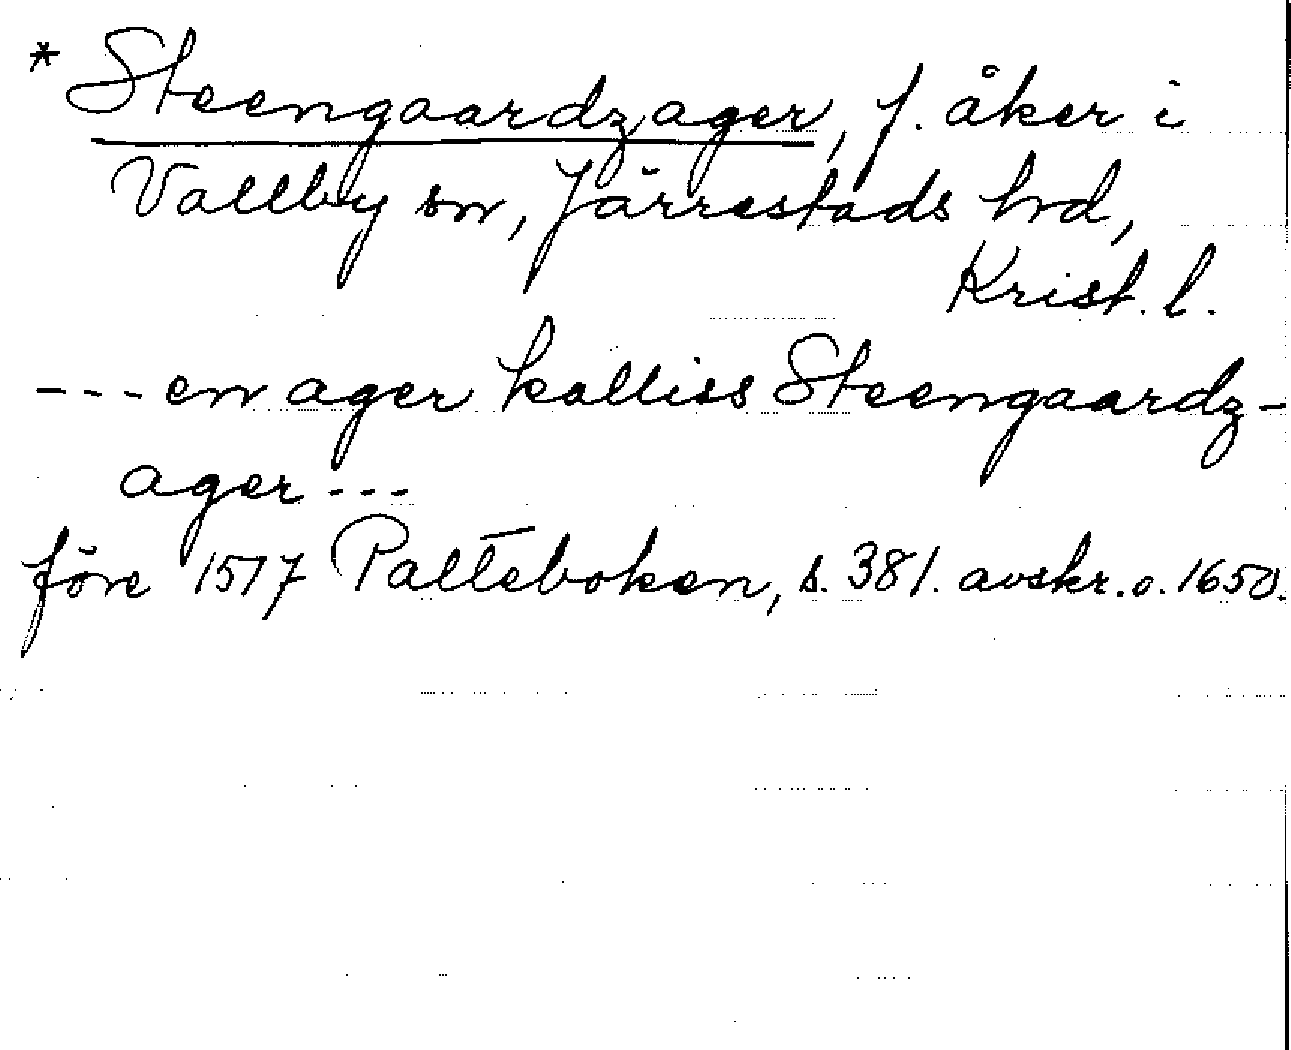 * Steengaardzager, f. åker i
Vallby sn, Järrestads hrd,
Krist. l.
--- en ager kalliss Steengaardz-
ager ---
före 1517 Palteboken, s. 381. avskr. o. 1650.